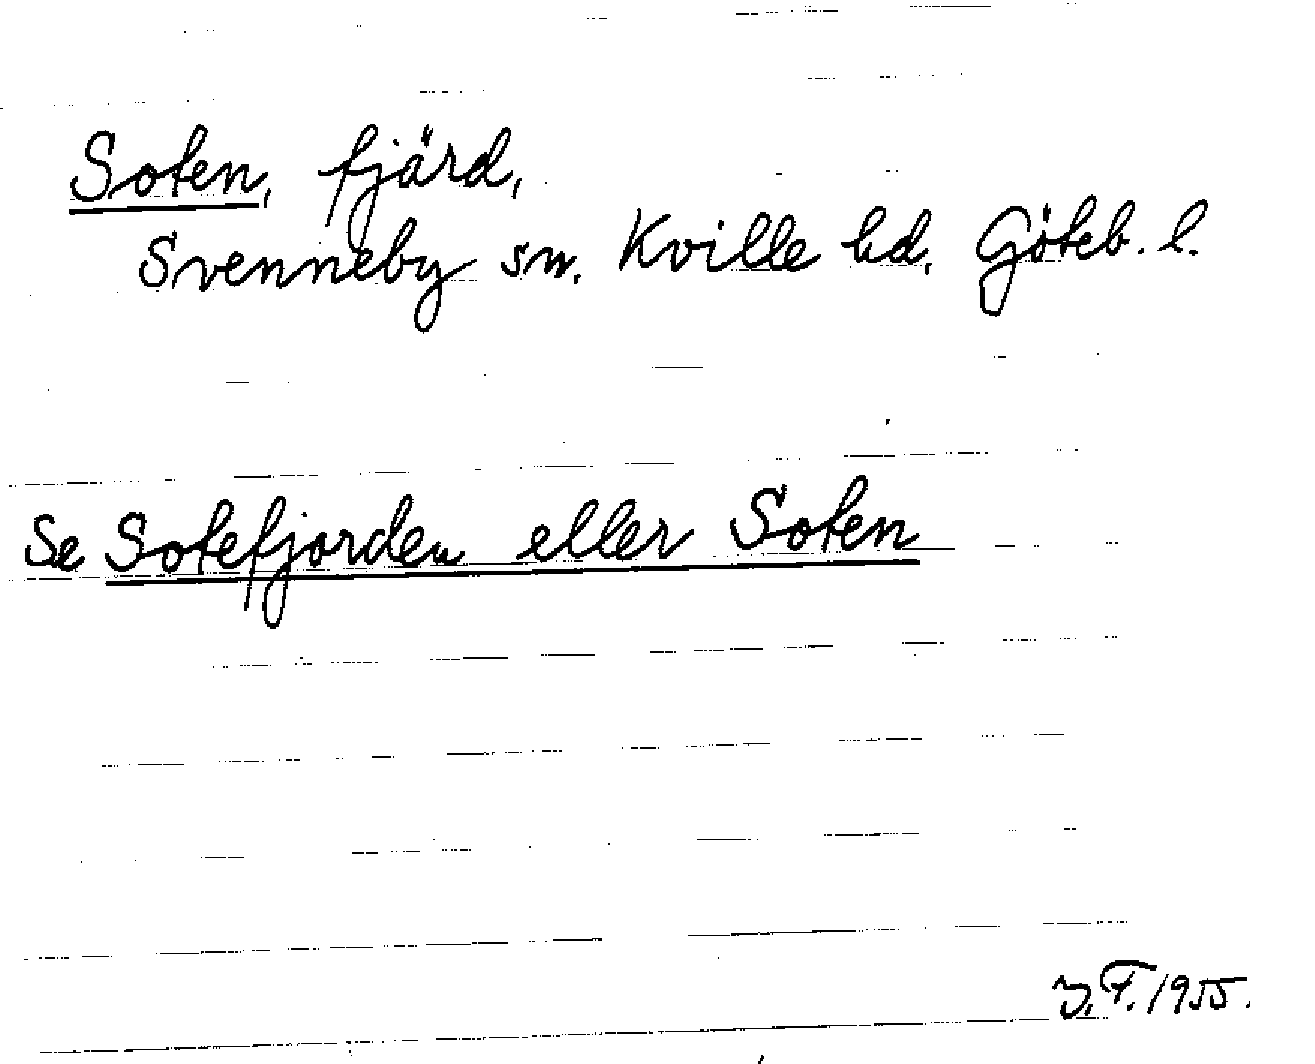 Soten, fjärd,
Svenneby sn. Kville hd. Göteb. l.
Se Sotefjorden eller Soten
y.F. 1955.